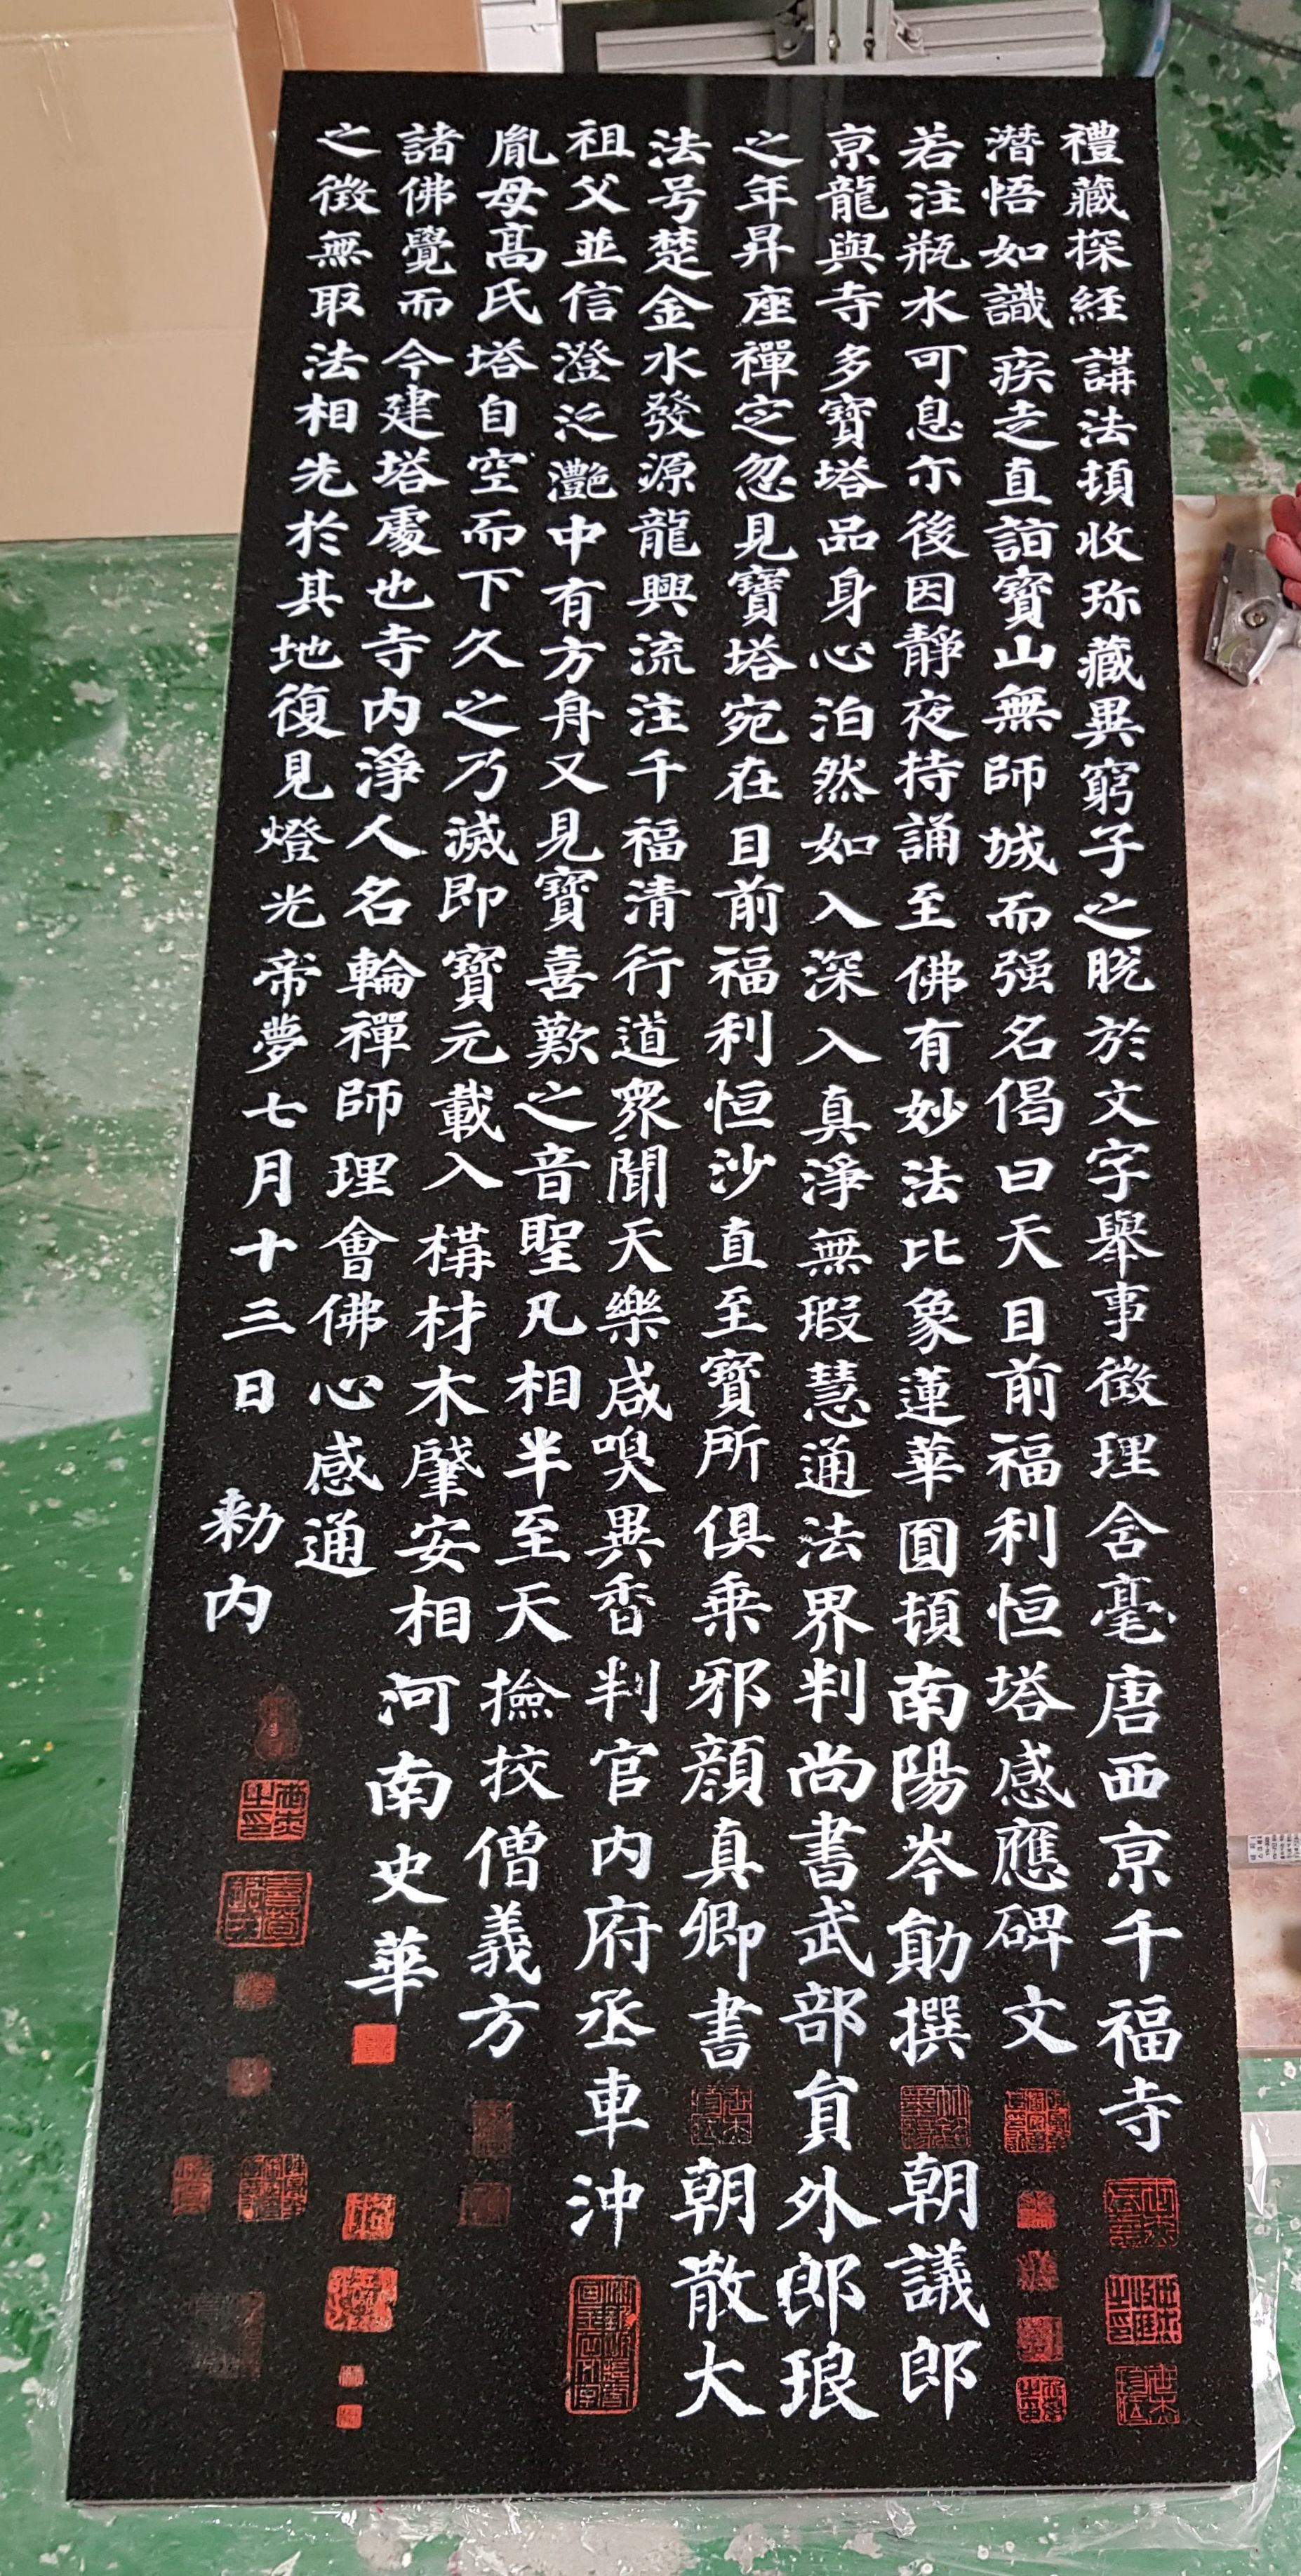 禮藏探経講法頓收珎藏異窮子之脫於文字舉事徵理含毫唐西京千福寺
潛悟如識疾走直詣寳山無師城而强名偈曰天目前福利恒塔感應碑文
若注瓶水可息尒後因靜夜持誦至佛有妙法比象蓮華圓頓南陽岑勛撰朝議郎
京龍興寺多寶塔品身心泊然如入深入真淨無瑕慧通法界判尚書武部員外郎琅
之年昇座禪定忽見寶塔宛在目前福利恒沙直至寶所俱乗邪顏真卿書朝散大
法号楚金水發源龍興流注千福清行道衆聞天樂咸嗅異香判官内府丞車沖
祖父並信澄泛灔中有方舟又見寶喜歎之音聖凡相半至天撿挍僧義方
胤母髙氏塔自空而下久之乃滅即寶元載入構材木肇安相河南史華
諸佛覺而今建塔處也寺内淨人名輪禪師理會佛心感通
之徵無取法相先於其地復見燈光帝夢七月十三日勑内